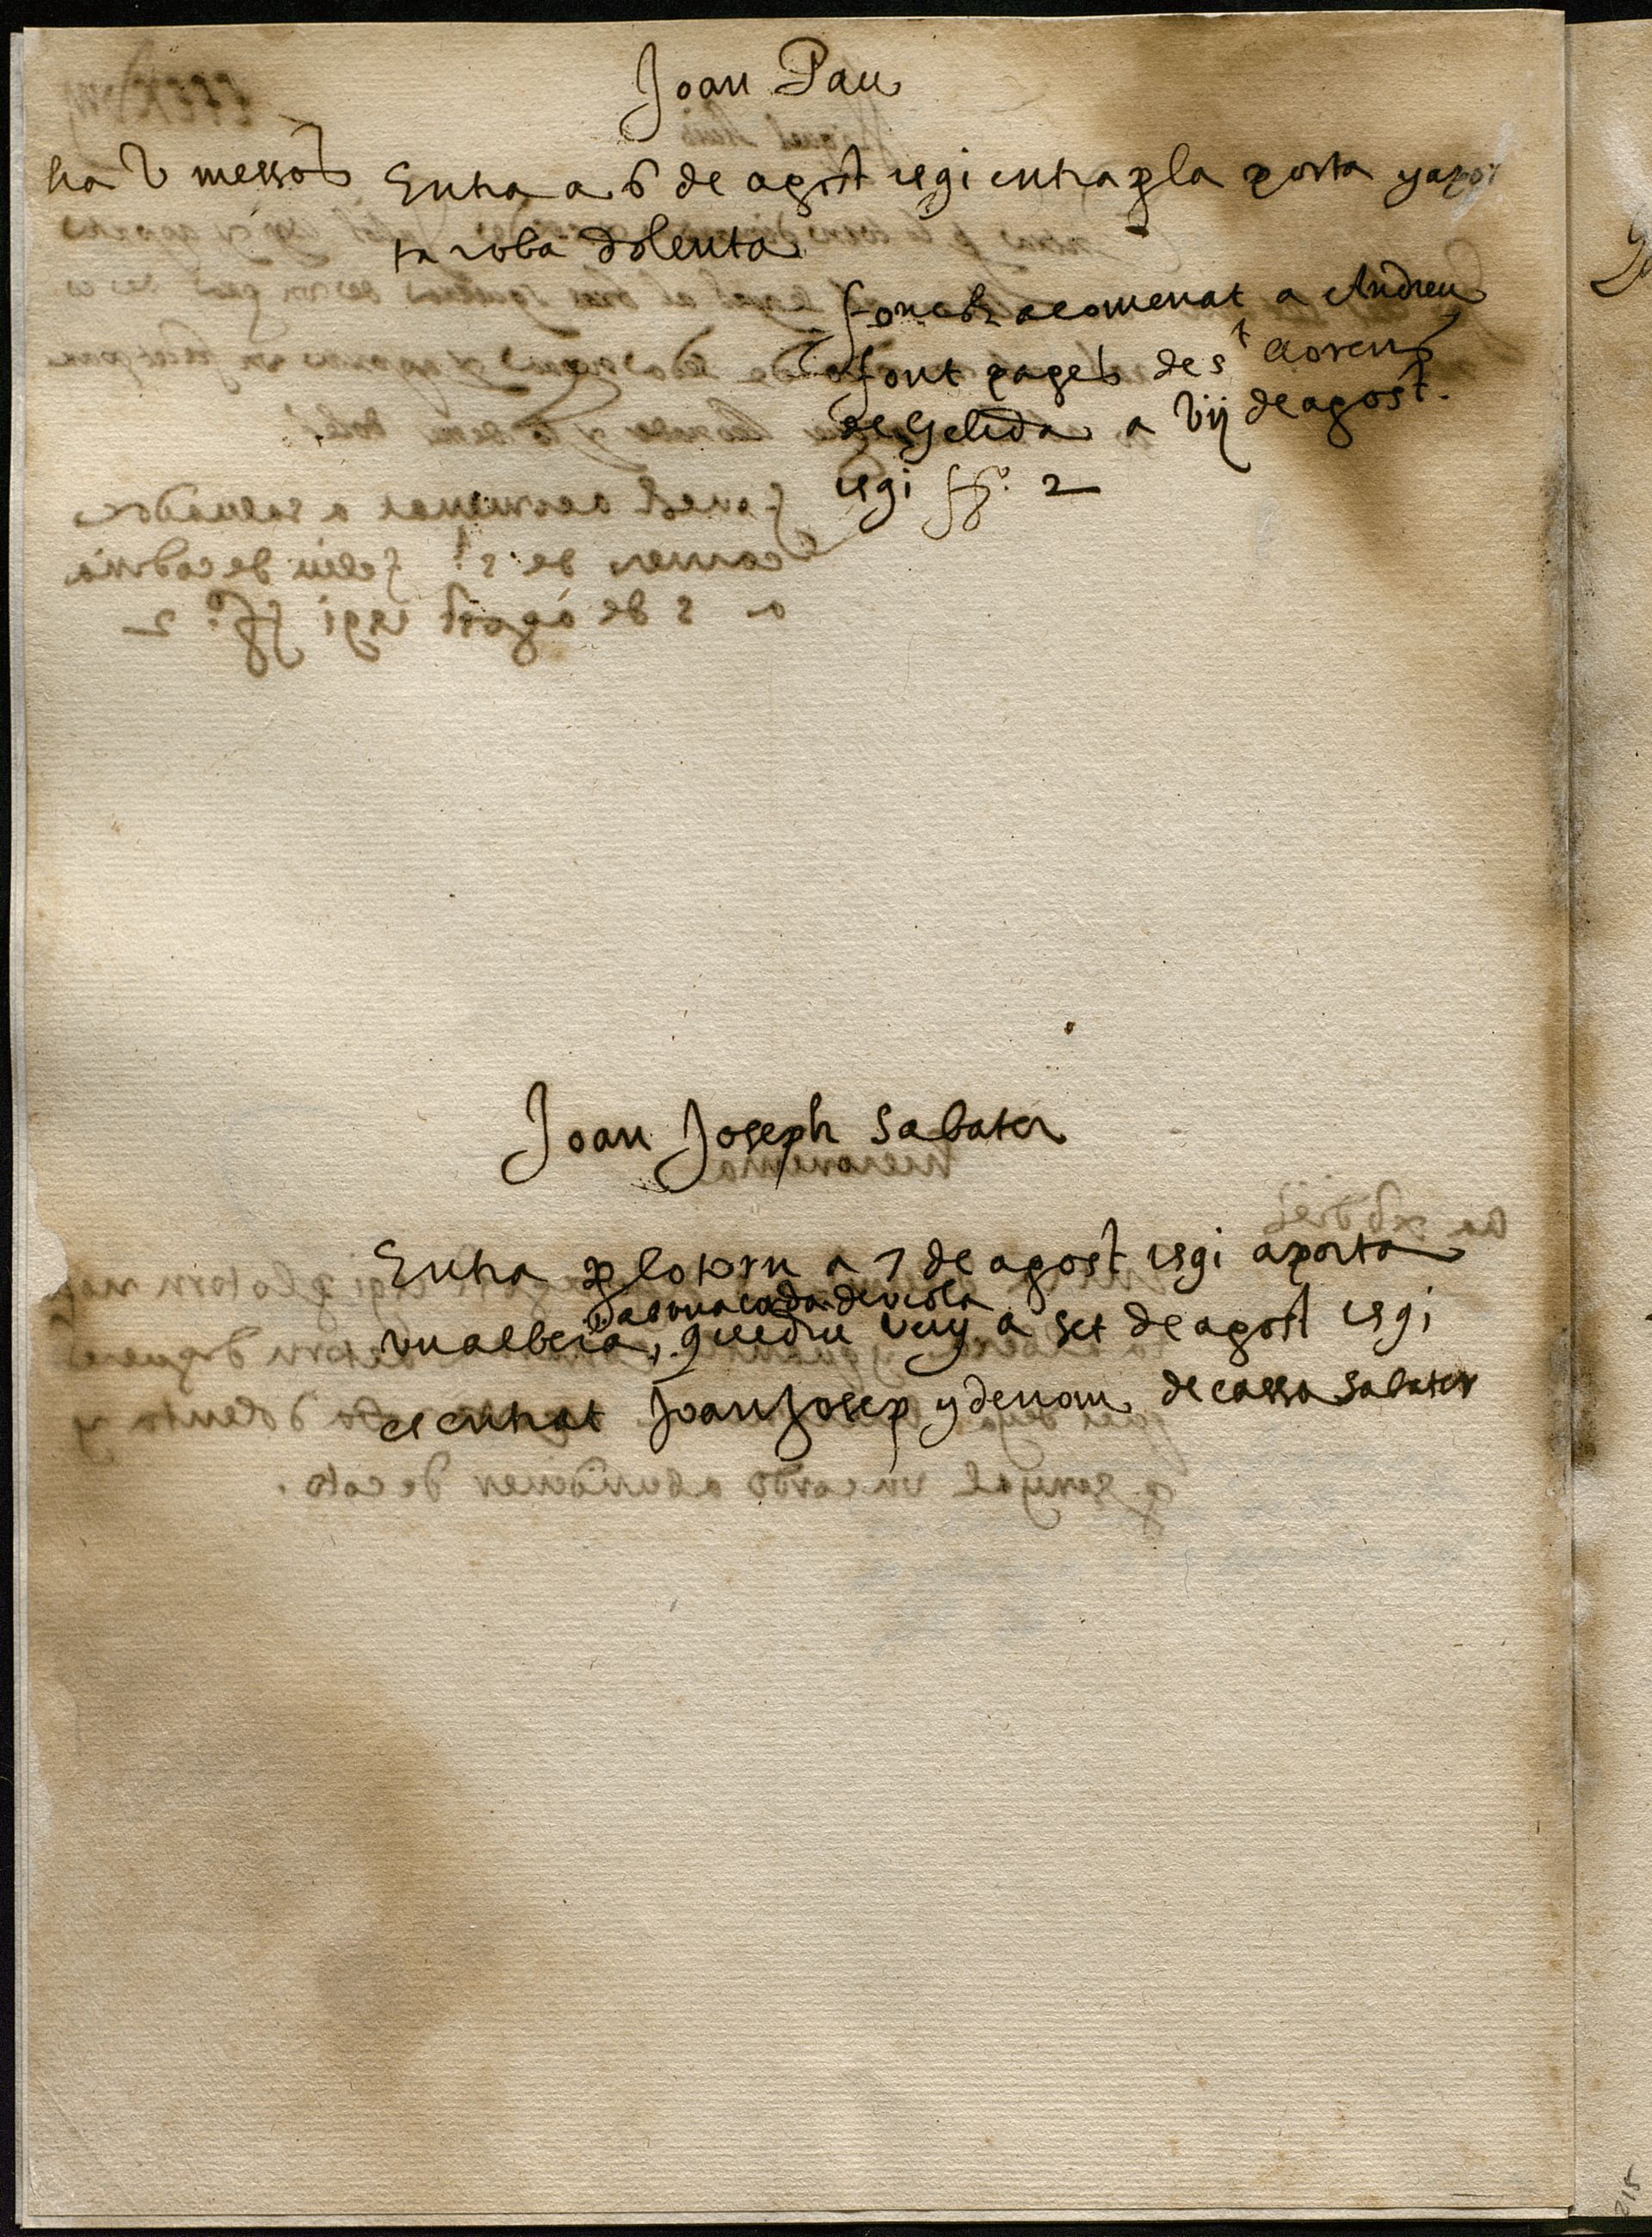 Joan Pau
ha V messos
Entra a 6 de agost 1591 entra p la porta y apor
ta roba dolenta
fonch acomenat a Andreu
font pages de st Llorens
de Gelida a Vij de agost
1591 ff.º 2
Joan Joseph Sabater
Entra p lo torn a 7 de agost 1591 aporta
ab una corda de viola
un albera, q̄ diu vuy a set de agost 1591
es entrat Joan Josep y de nom de cassa Sabater